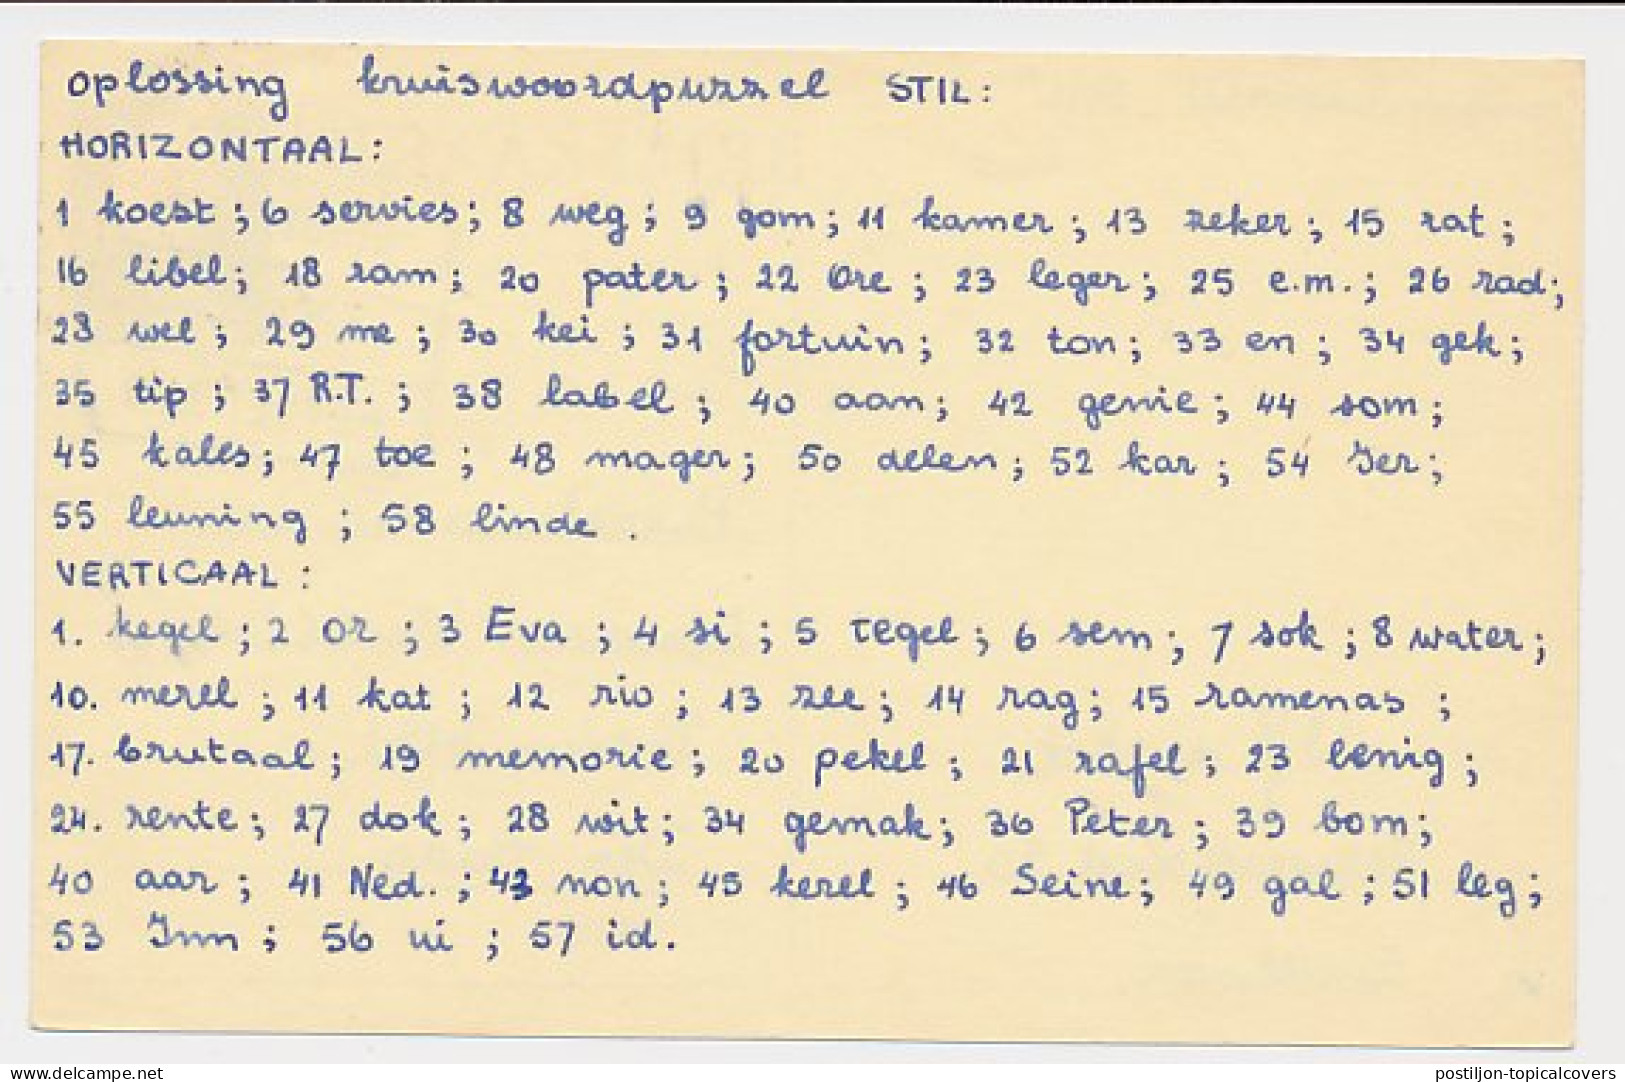 oplossing kruiswoordpuzzel STIL:
HORIZONTAAL:
1 koest; 6 servies; 8 weg; 9 gom; 11 kamer; 13 zeker; 15 rat;
16 libel; 18 ram; 20 pater; 22 Ore; 23 leger; 25 e.m.; 26 rad;
28 wel; 29 me; 30 kei; 31 fortuin; 32 ton; 33 en; 34 gek;
35 tip; 37 R.T.; 38 label; 40 aan; 42 genie; 44 som;
45 kales; 47 toe; 48 mager; 50 delen; 52 kar; 54 Ier;
55 leuning; 58 linde.
VERTICAAL:
1. kegel; 2 or; 3 Eva; 4 si; 5 tegel; 6 sem; 7 sok; 8 water;
10. merel; 11 kat; 12 rio; 13 zee; 14 rag; 15 ramenas;
17. brutaal; 19 memorie; 20 pekel; 21 rafel; 23 lenig;
24. rente; 27 dok; 28 wit; 34 gemak; 36 Peter; 39 bom;
40 aar; 41 Ned.; 43 non; 45 kerel; 46 Seine; 49 gal; 51 leg;
53 Inn; 56 ui; 57 id.
www.delcampe.net
postiljon-topicalcovers